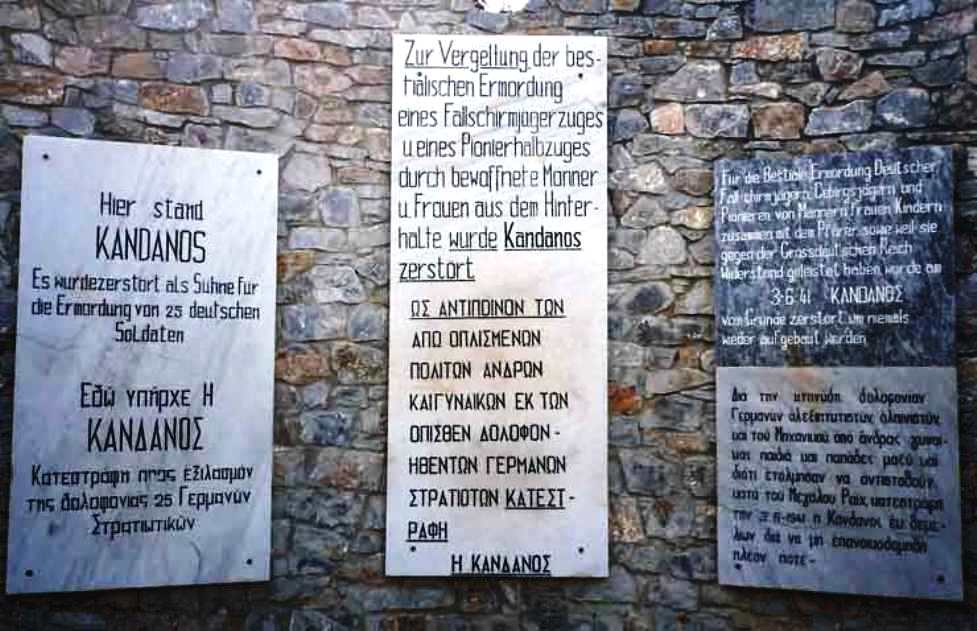 Hier stand
KANDANOS
Es wurdezerstört als Sühne für
die Ermordung von 25 deutschen
Soldaten
Εδώ υπήρχε Η
ΚΑΝΔΑΝΟΣ
Κατεστράφη προς εξιλασμόν
της δολοφονίας 25 Γερμανών
Στρατιωτικών
Zur Vergeltung der bes-
tialischen Ermordung
eines Fallschirmjägerzuges
u.eines Pionierhalbzuges
durch bewaffnete Männer
u. Frauen aus dem Hinter-
halte wurde Kandanos
zerstört
ΩΣ ΑΝΤΙΠΟΙΝΟΝ ΤΩΝ
ΑΠΟ ΟΠΛΙΣΜΕΝΩΝ
ΠΟΛΙΤΩΝ ΑΝΔΡΩΝ
ΚΑΙΓΥΝΑΙΚΩΝ ΕΚ ΤΩΝ
ΟΠΙΣΘΕΝ ΔΟΛΟΦΟΝ-
ΗΘΕΝΤΩΝ ΓΕΡΜΑΝΩΝ
ΣΤΡΑΤΙΟΤΩΝ ΚΑΤΕΣΤ-
ΡΑΦΗ
Η ΚΑΝΔΑΝΟΣ
Für die Bestiale Ermordung Deutscher
Fallschirmjägern, Gebirgsjägern und
Pionieren von Männern, Frauen, Kindern
zusammen mit dem Pfarrer sowie weil sie
gegen der Grossdeutschen Reich
Widerstand geleistet haben wurde am
3·6·41 KANDANOS
von Grunde zerstört um niemals
wieder aufgebaut werden
Δια την κτηνώδη δολοφονίαν
Γερμανών αλεξιπτωτιστών, αλπινιστών
και του Μηχανικού από άνδρας, γυναί-
κας παιδιά και παπάδες μαζύ και
διότι ετόλμησαν να αντισταθούν
κατά του Μεγάλου Ράιχ κατεστράφη
την 3-6-1941 η Κάνδανος εκ θεμε-
λίων, δια να μη επανοικοδομηθή
πλέον ποτέ-